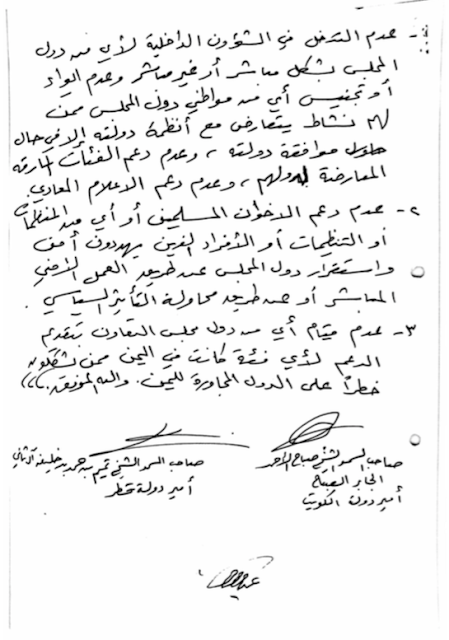 ١- عدم التدخل في الشؤون الداخلية لأي من دول
المجلس بشكل مباشر أو غير مباشر وعدم ايواء
أو تجنيس أي من مواطني دول المجلس ممن
لهم نشاط يتعارض مع أنظمة دولته إلا في حال
موافقة دولته ، وعدم دعم الفئات المارقة
المعارضة لدولهم ، وعدم دعم الاعلام المعادي.
٢- عدم دعم الاخوان المسلمين أو أي من المنظمات
أو التنظيمات أو الأفراد الذين يهددون أمن
واستقرار دول المجلس عن طريق العمل الأمني
المباشر أو عن طريق محاولة التأثير السياسي .
٣- عدم قيام أي من دول مجلس التعاون بتقديم
الدعم لأي فئة كانت في اليمن ممن يشكلون
خطراً على الدول المجاورة لليمن. والله الموفق،،،
صاحب السمو الشيخ صباح الأحمد
الجابر الصباح
أمير دولة الكويت
صاحب السمو الشيخ تميم بن حمد بن خليفة آل ثاني
أمير دولة قطر